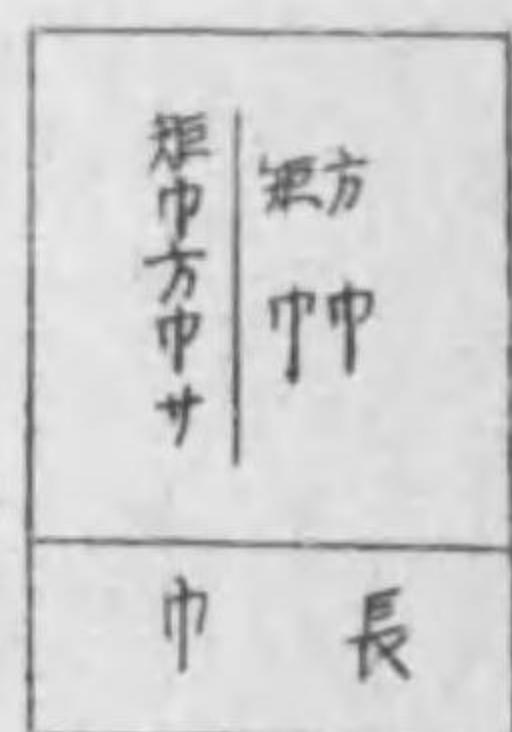 方巾
矩巾
矩巾方巾サ
長巾